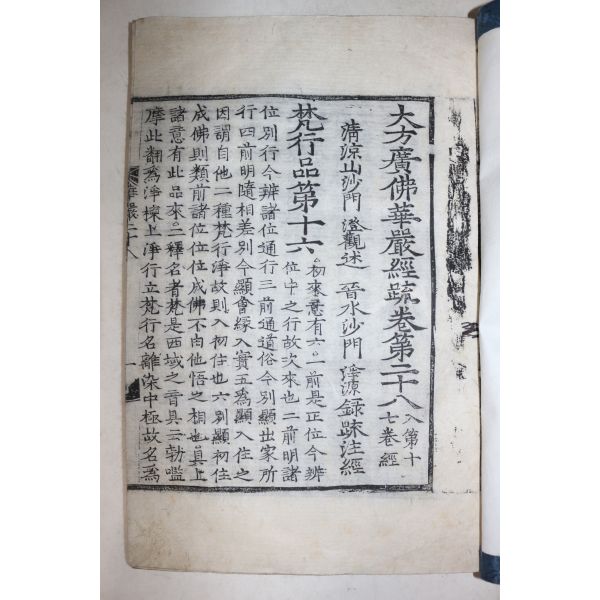 大方廣佛華嚴經䟽卷第二十八入第十七卷經
清涼山沙門 澄觀述 晉水沙門 淨源録疏注經
梵行品第十六初來意有六一前是正位今辨位中之行故次來也二前明諸
位別行今辨諸位通行三前通道俗今別顯出家所
行四前明隨相差別今顯會緣入實五爲顯入住之
因謂自他二種梵行淨故則入初住也六別顯初住
成佛則類前諸位位位成佛不由他悟之相也具上
諸意有此品來二釋名者梵是西域之音具云勃嚂
摩此翻爲淨揀上淨行立梵行名離染中極故名爲
華嚴二十八
一